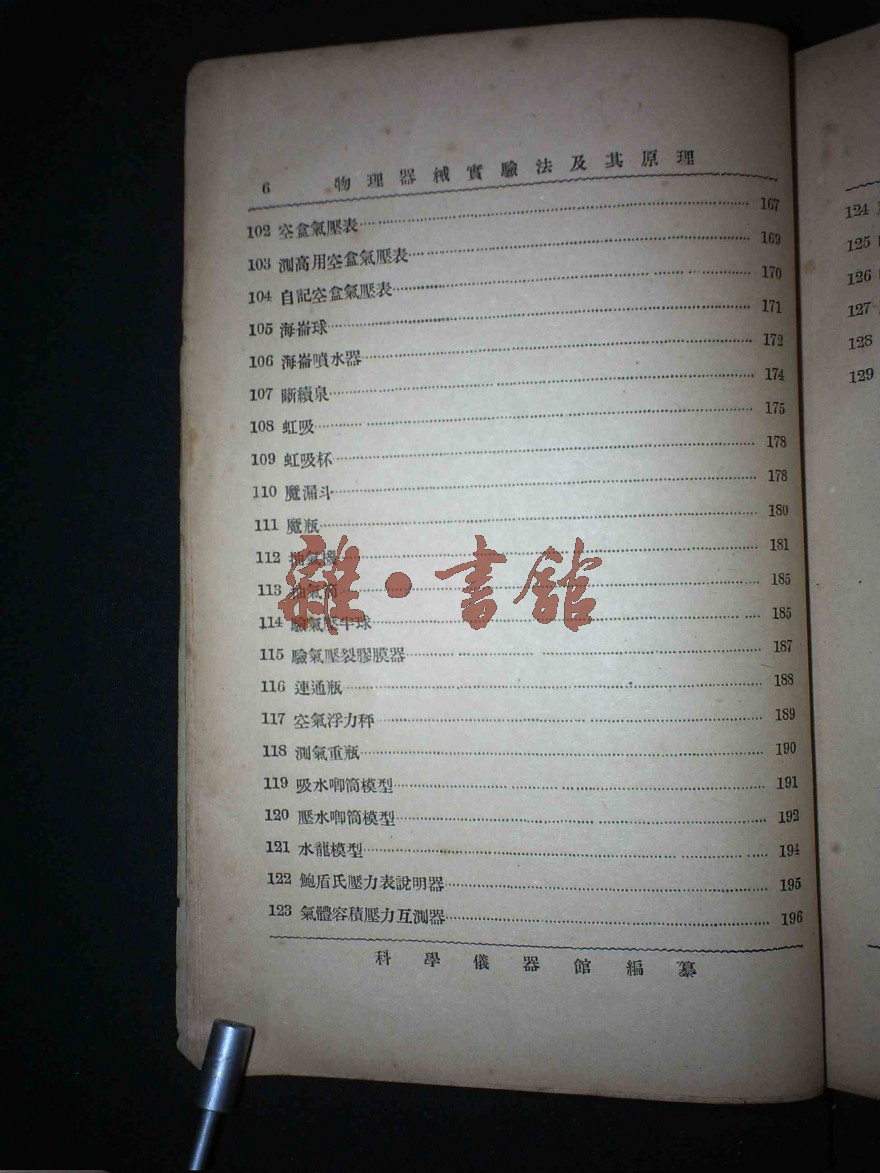 6 物理器械實驗法及其原理
102 空盒氣壓表 167
103 測高用空盒氣壓表 169
104 自記空盒氣壓表 170
105 海崙球 171
106 海崙噴水器 172
107 斷續泉 174
108 虹吸 175
109 虹吸杯 178
110 魔漏斗 178
111 魔瓶 180
112 抽氣機 181
113 抽氣筒 185
114 驗氣壓半球 185
115 驗氣壓裂膠膜器 187
116 連通瓶 188
117 空氣浮力秤 189
118 測氣重瓶 190
119 吸水喞筒模型 191
120 壓水喞筒模型 192
121 水龍模型 194
122 鮑盾氏壓力表說明器 195
123 氣體容積壓力互測器 196
科學儀器館編纂
雜·書館
124
125
126
127
128
129